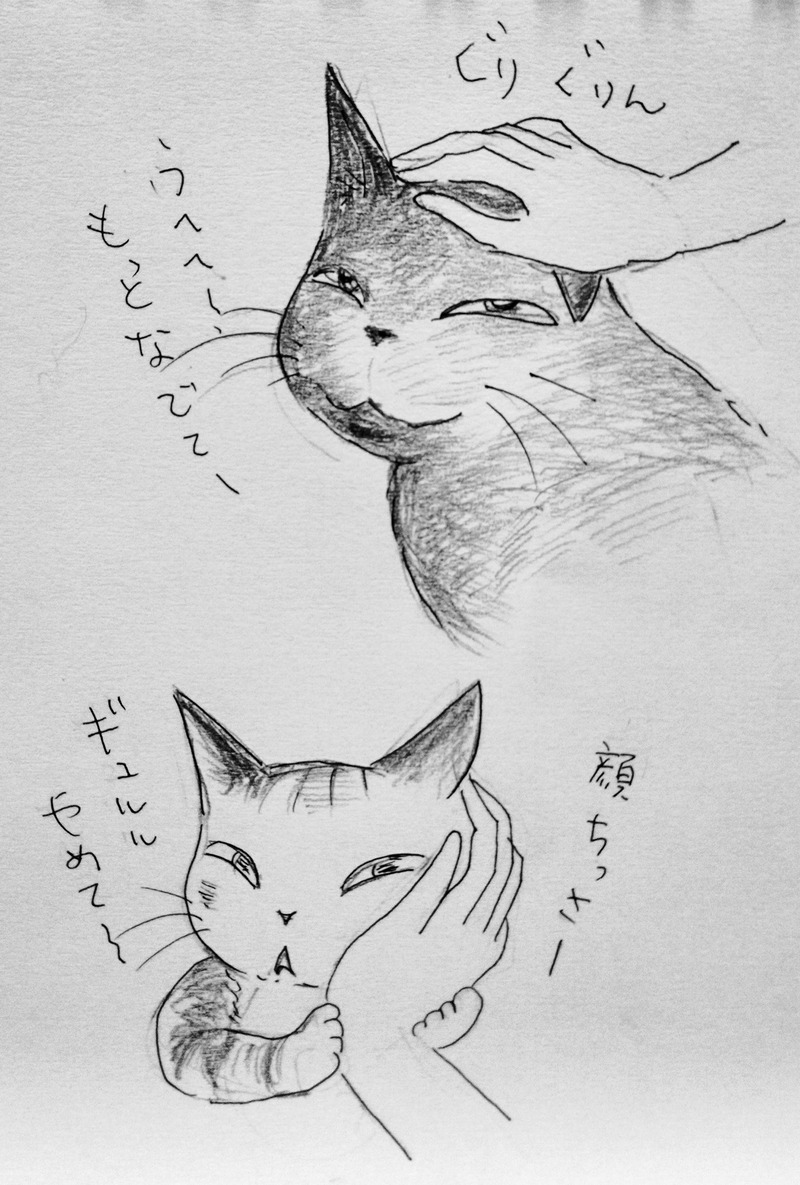 ぐり ぐりん
うへへ〜、
もっとなでてー
顔ちっさー
ギュルル
やめて〜